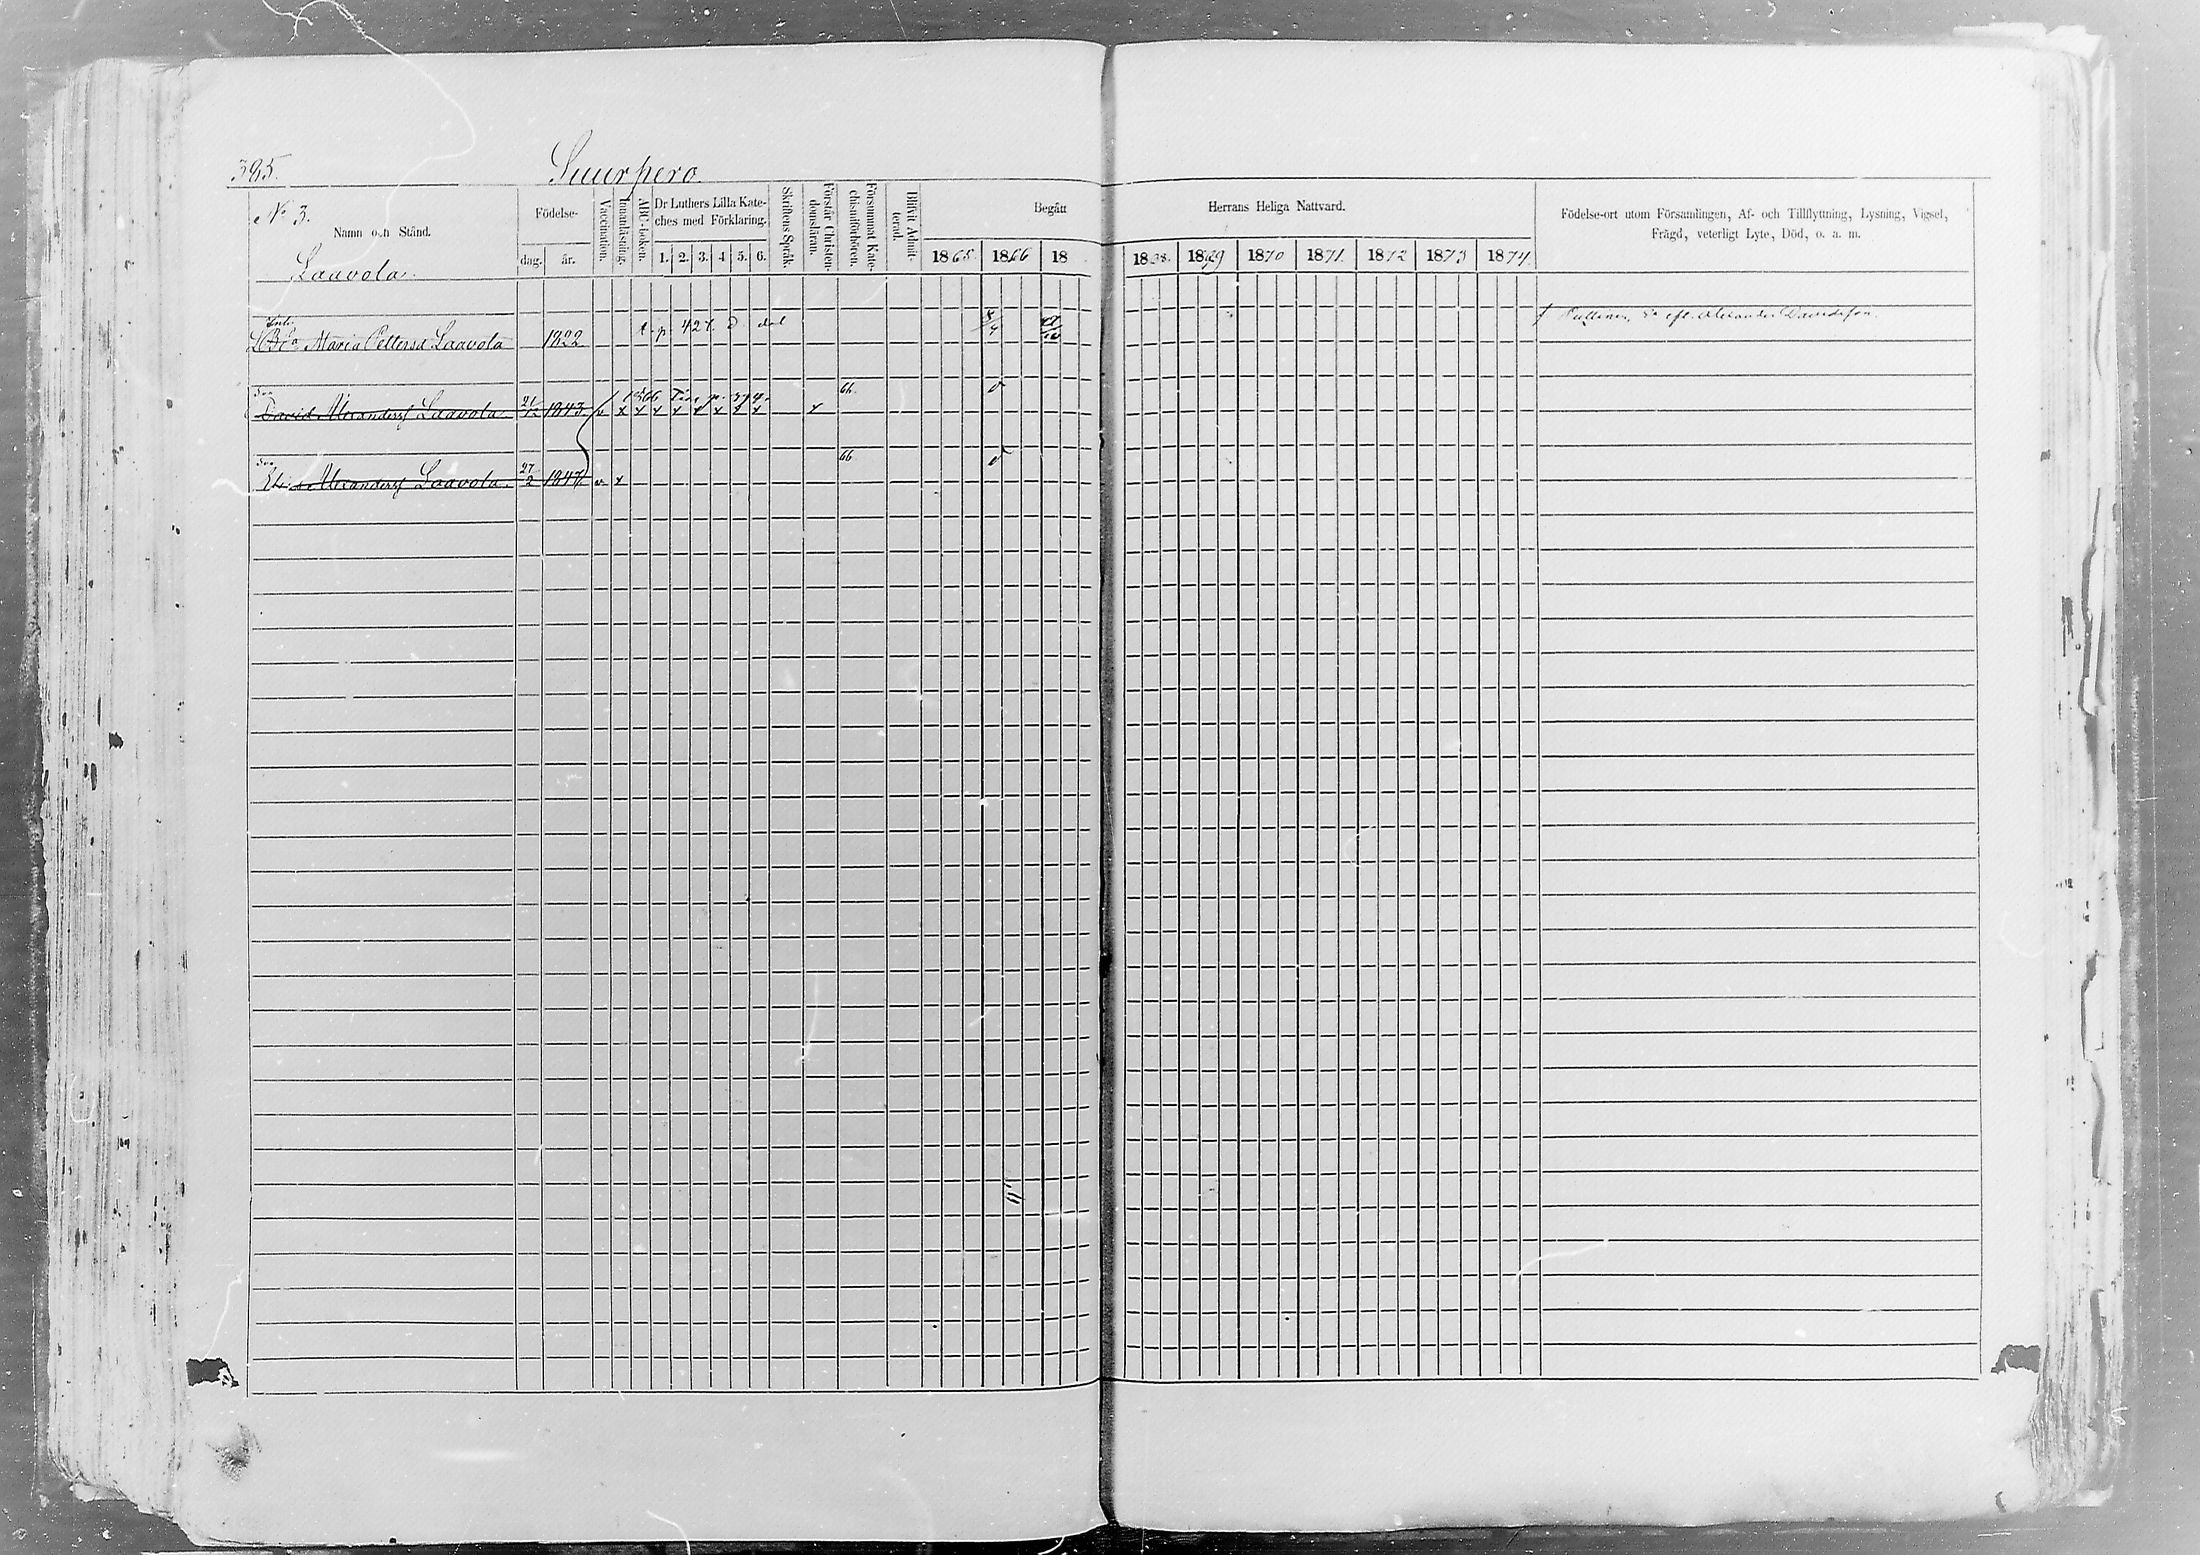 385.
Suurpero
No 3.
Namn och Stånd.
Laavola.
Födelse-
dag. år.
Vaccination.
Innanläsning.
ABC-boken.
Dr Luthers Lilla Kate-
ches med Förklaring.
1. 2. 3. 4 5. 6.
Skriftens Språk.
Förstår Christen-
domsläran.
Försummat Kate-
chismiförhören.
Blifvit Admit-
terad.
Begått Herrans Heliga Nattvard.
1865. 1866 18 1868. 1869 1870 1871. 1872 1873 1874.
Födelse-ort utom Församlingen, Af- och Tillflyttning, Lysning, Vigsel,
Frägd, veterligt Lyte, Död, o. a. m.
Maria Pettersd Laavola 1822 t. p. 427. eft. Alexander Davidsson.
David Alexandersf Laavola 21/12 1843. v 1866 p. 394. x x x x x x x x x 66.
Alexandersf Laavola. 27/2 1847 v x 66